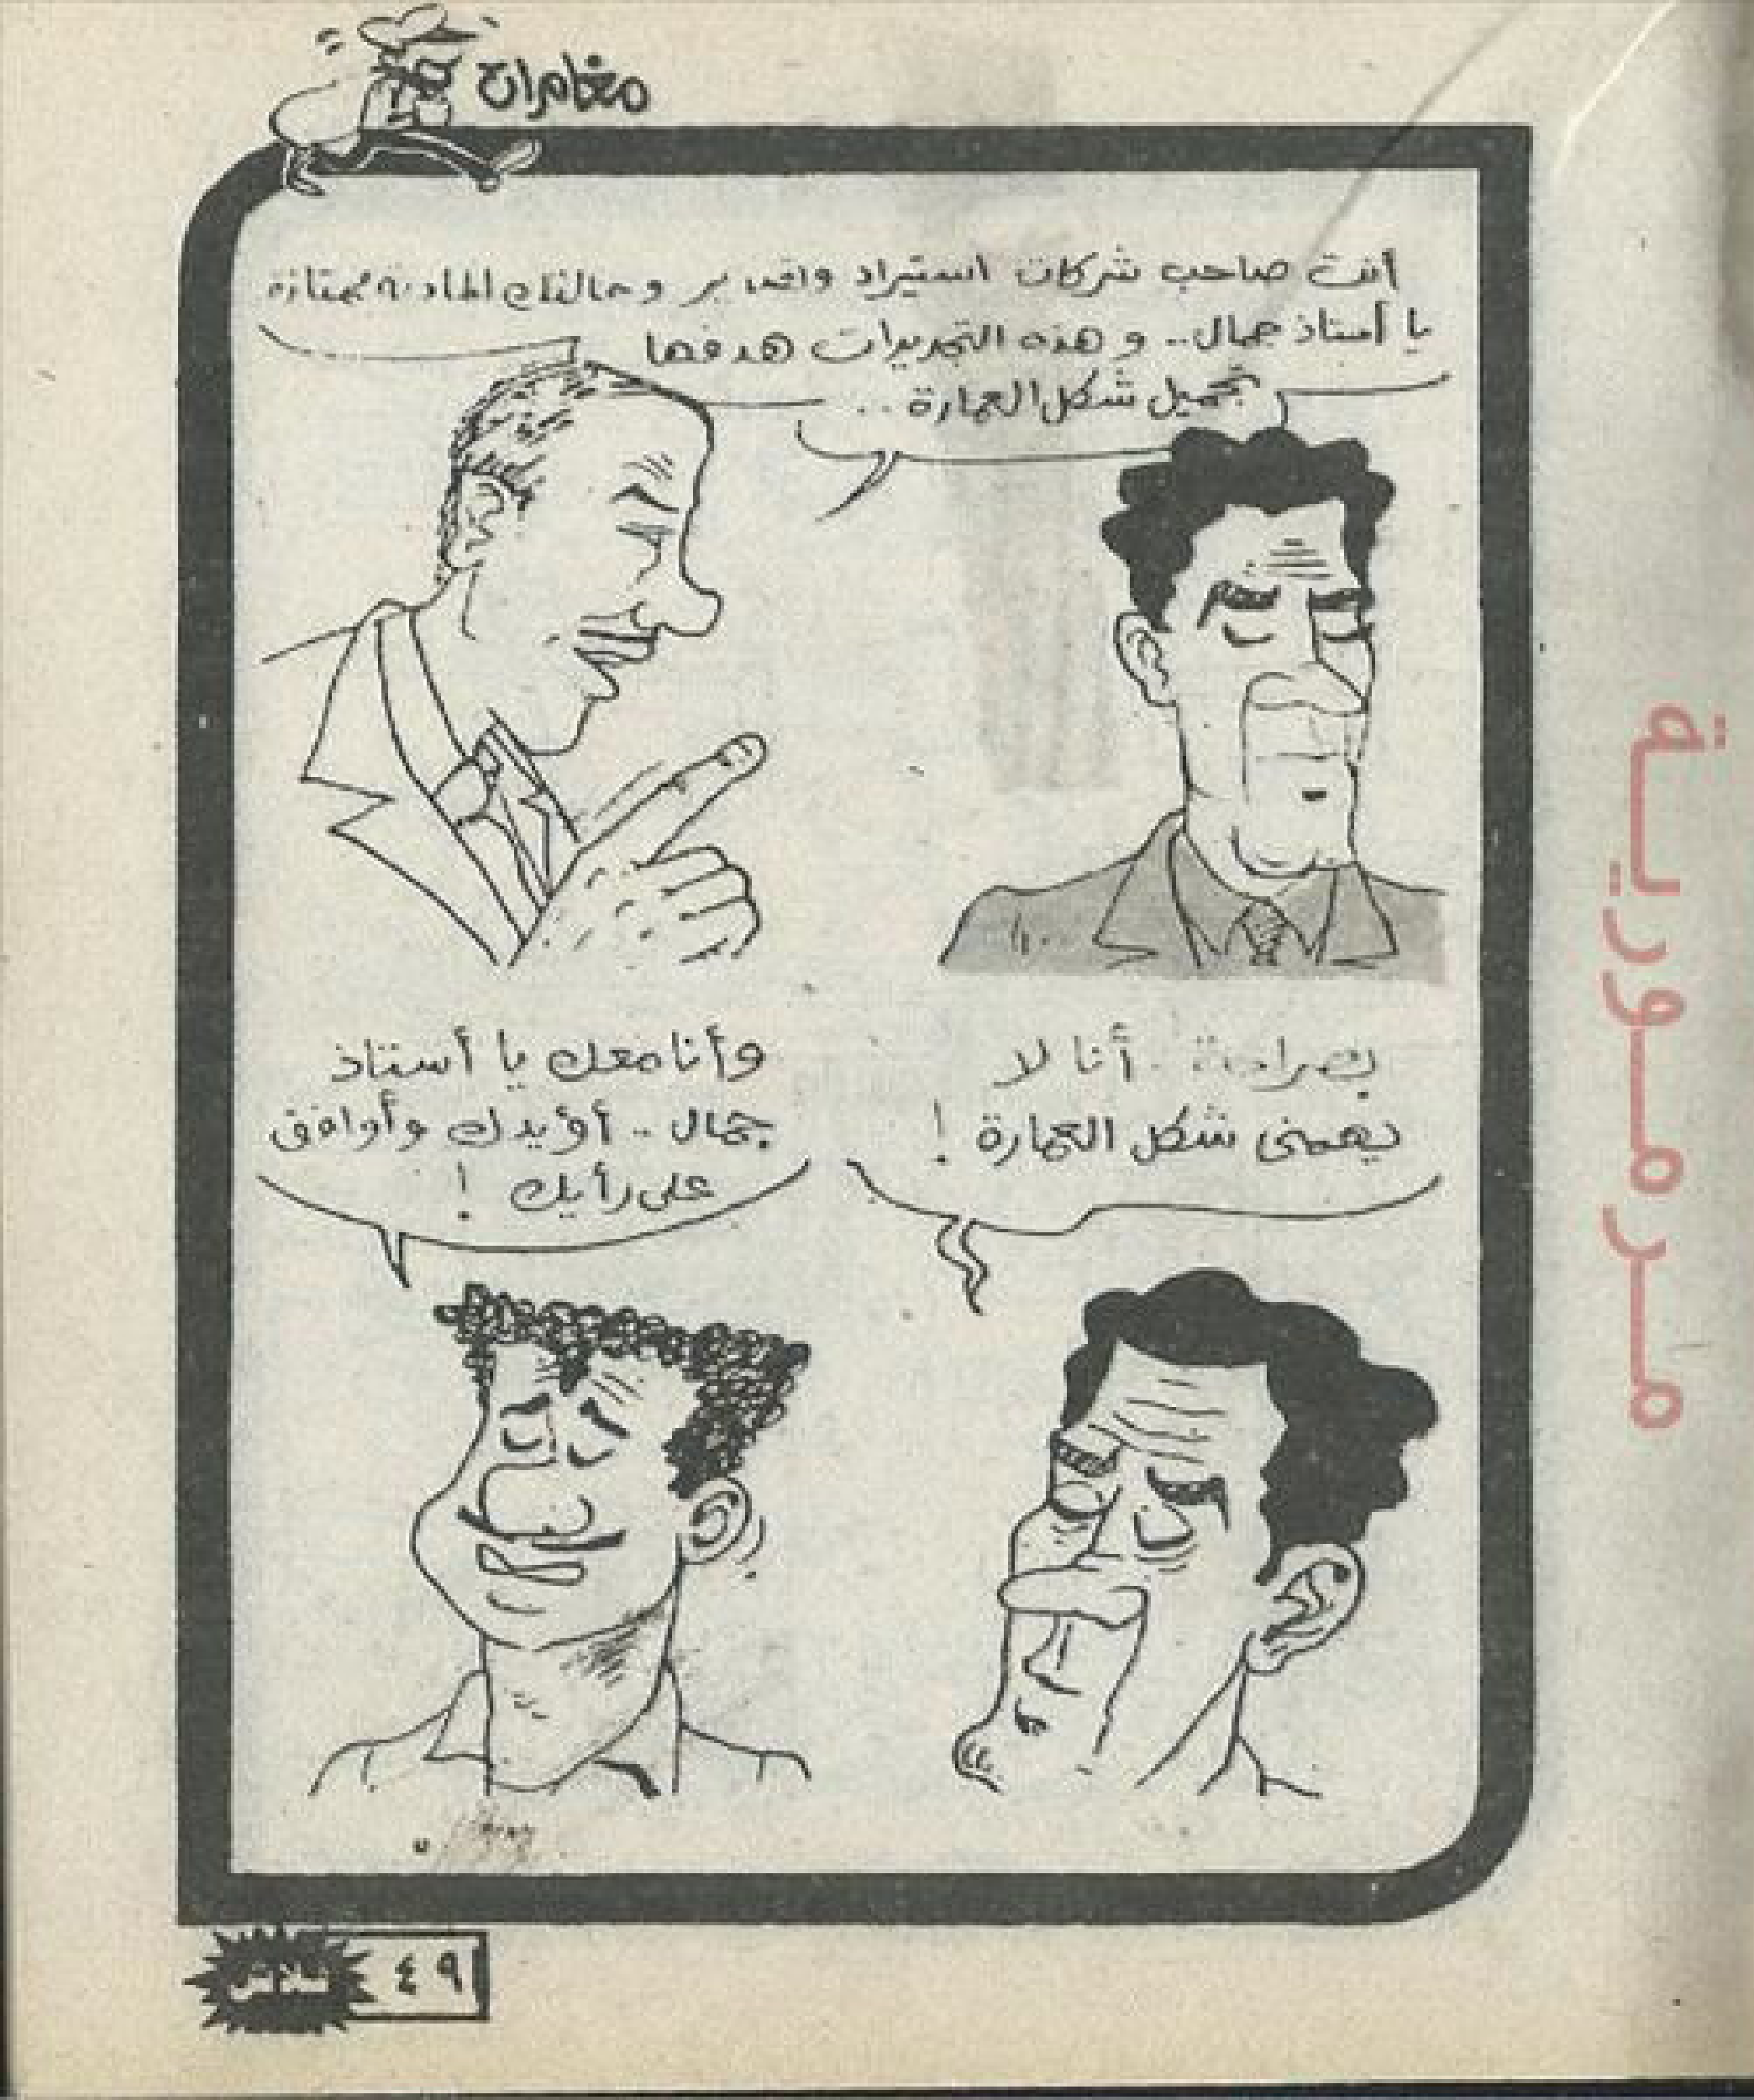 مغامرات
أنت صاحب شركات استيراد وتصدير وحالتك المادية ممتازة
يا أستاذ جمال.. و هذه التجديدات هدفها
تجميل شكل العمارة ..
بصراحة .. أنا لا
يهمنى شكل العمارة !
وأنا معك يا أستاذ
جمال .. أؤيدك وأوافق
على رأيك !
مرمورية
٤٩